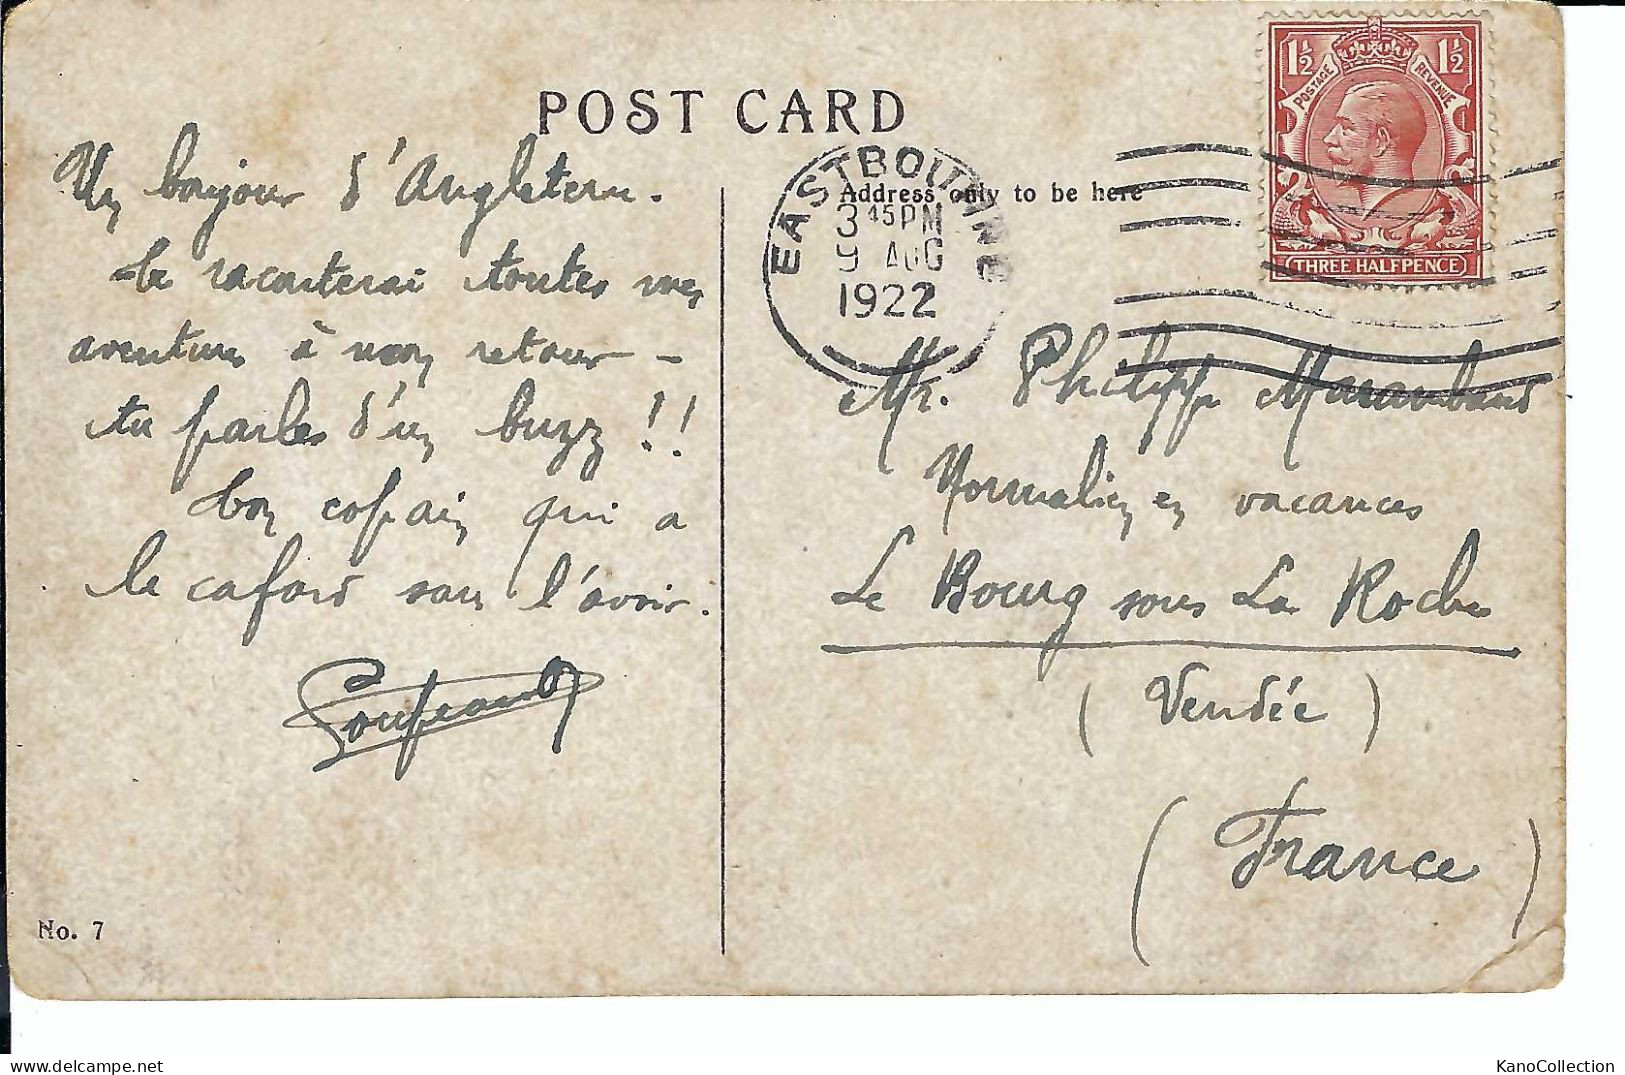 POST CARD
Un bonjour d'Angleterre.
te raconterai toutes mes
aventures à mon retour –
tu parles d'un buzz !!
Ton copain qui a
le cafard sans l'avoir.
No. 7
Address only to be here
EASTBOURNE
3 45 PM
9 AUG
1922
1½ 1½
POSTAGE REVENUE
THREE HALFPENCE
Mr. Philippe
Normalien en vacances
Le Bourg sous La Roche
(Vendée)
(France)
KanoCollection